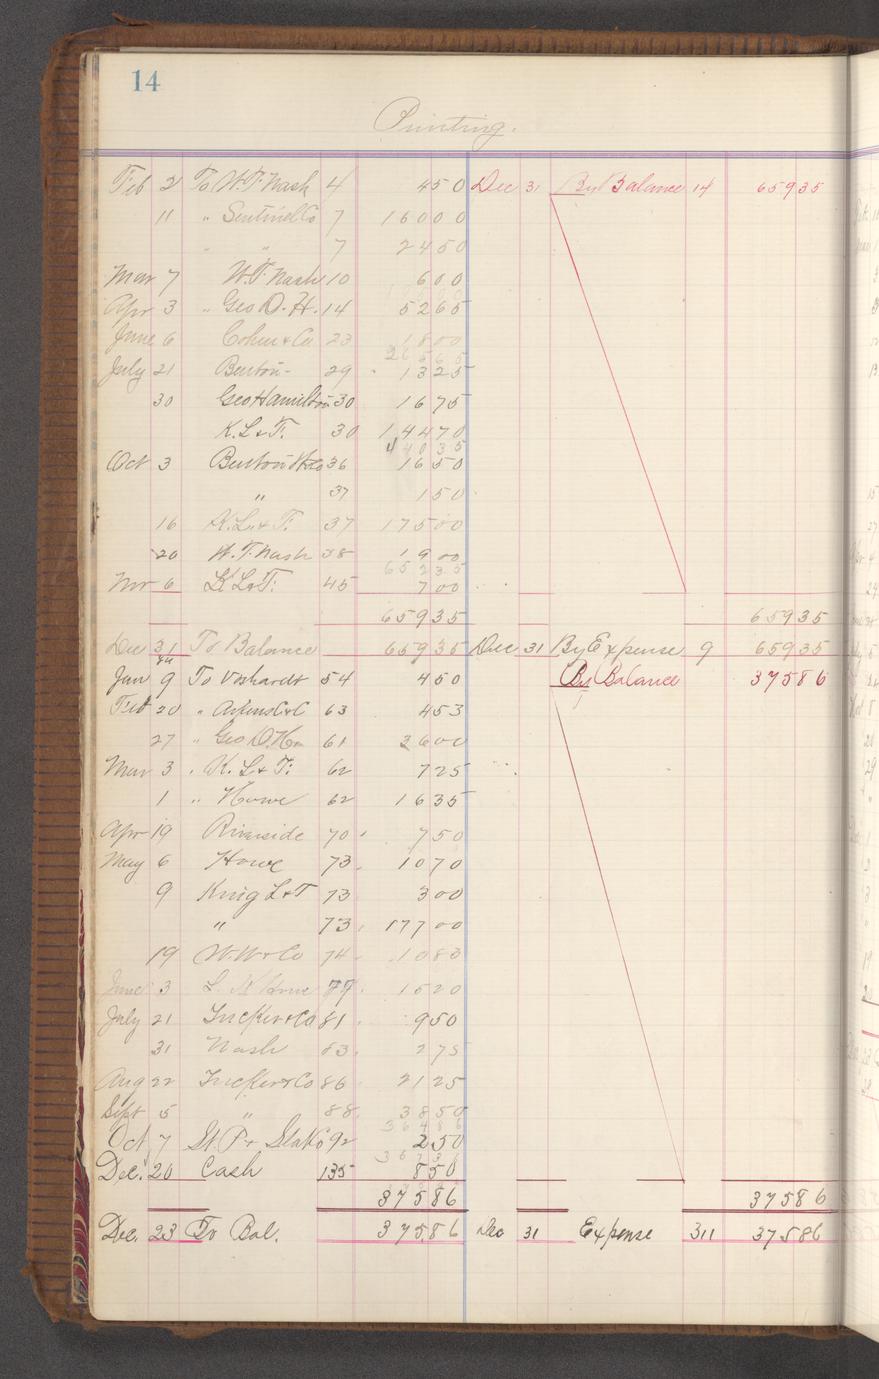 14
Printing.
Feb 2 To W.F. Nash 4 450 Dec 31 By Balance 14 65935
11 " Sentinel Co 7 16000
" " 7 2450
Mar 7 W.F. Nash 10 600
Apr 3 " Geo D. H. 14 5265
June 6 Cohen & Co 23 1800
26565
July 21 Benton - 29 1325
30 Geo Hamilton 30 1675
K. L & T. 30 14470
44035
Oct 3 Benton 36 1650
" 37 150
16 K. L. & T. 37 17500
20 W. F. Nash 38 1900
65235
Nov 6 K L & T. 45 700
65935 65935
Dec 31 To Balance 65935 Dec 31 By Expense 9 65935
Jan 9 To Voshardt 54 450 By Balance 37586
Feb 20 " 63 453
27 " Geo D. Hm 61 3600
Mar 3 " K. L & T. 62 725
1 " Howe 62 1635
Apr 19 Riverside 70 750
May 6 Howe 73 1070
9 King L & T 73 300
" 73 17700
19 W. W & Co 74 1083
June 3 L. N Howe 79 1520
July 21 Tucker & Co 81 950
31 Nash 83 275
Aug 22 Tucker & Co 86 2125
Sept 5 " 88 3850
36486
Oct 7 St. P & Sta Co 92 250
36736
Dec. 20 Cash 135 850
37586 37586
Dec. 23 To Bal. 37586 Dec 31 Expense 311 37586